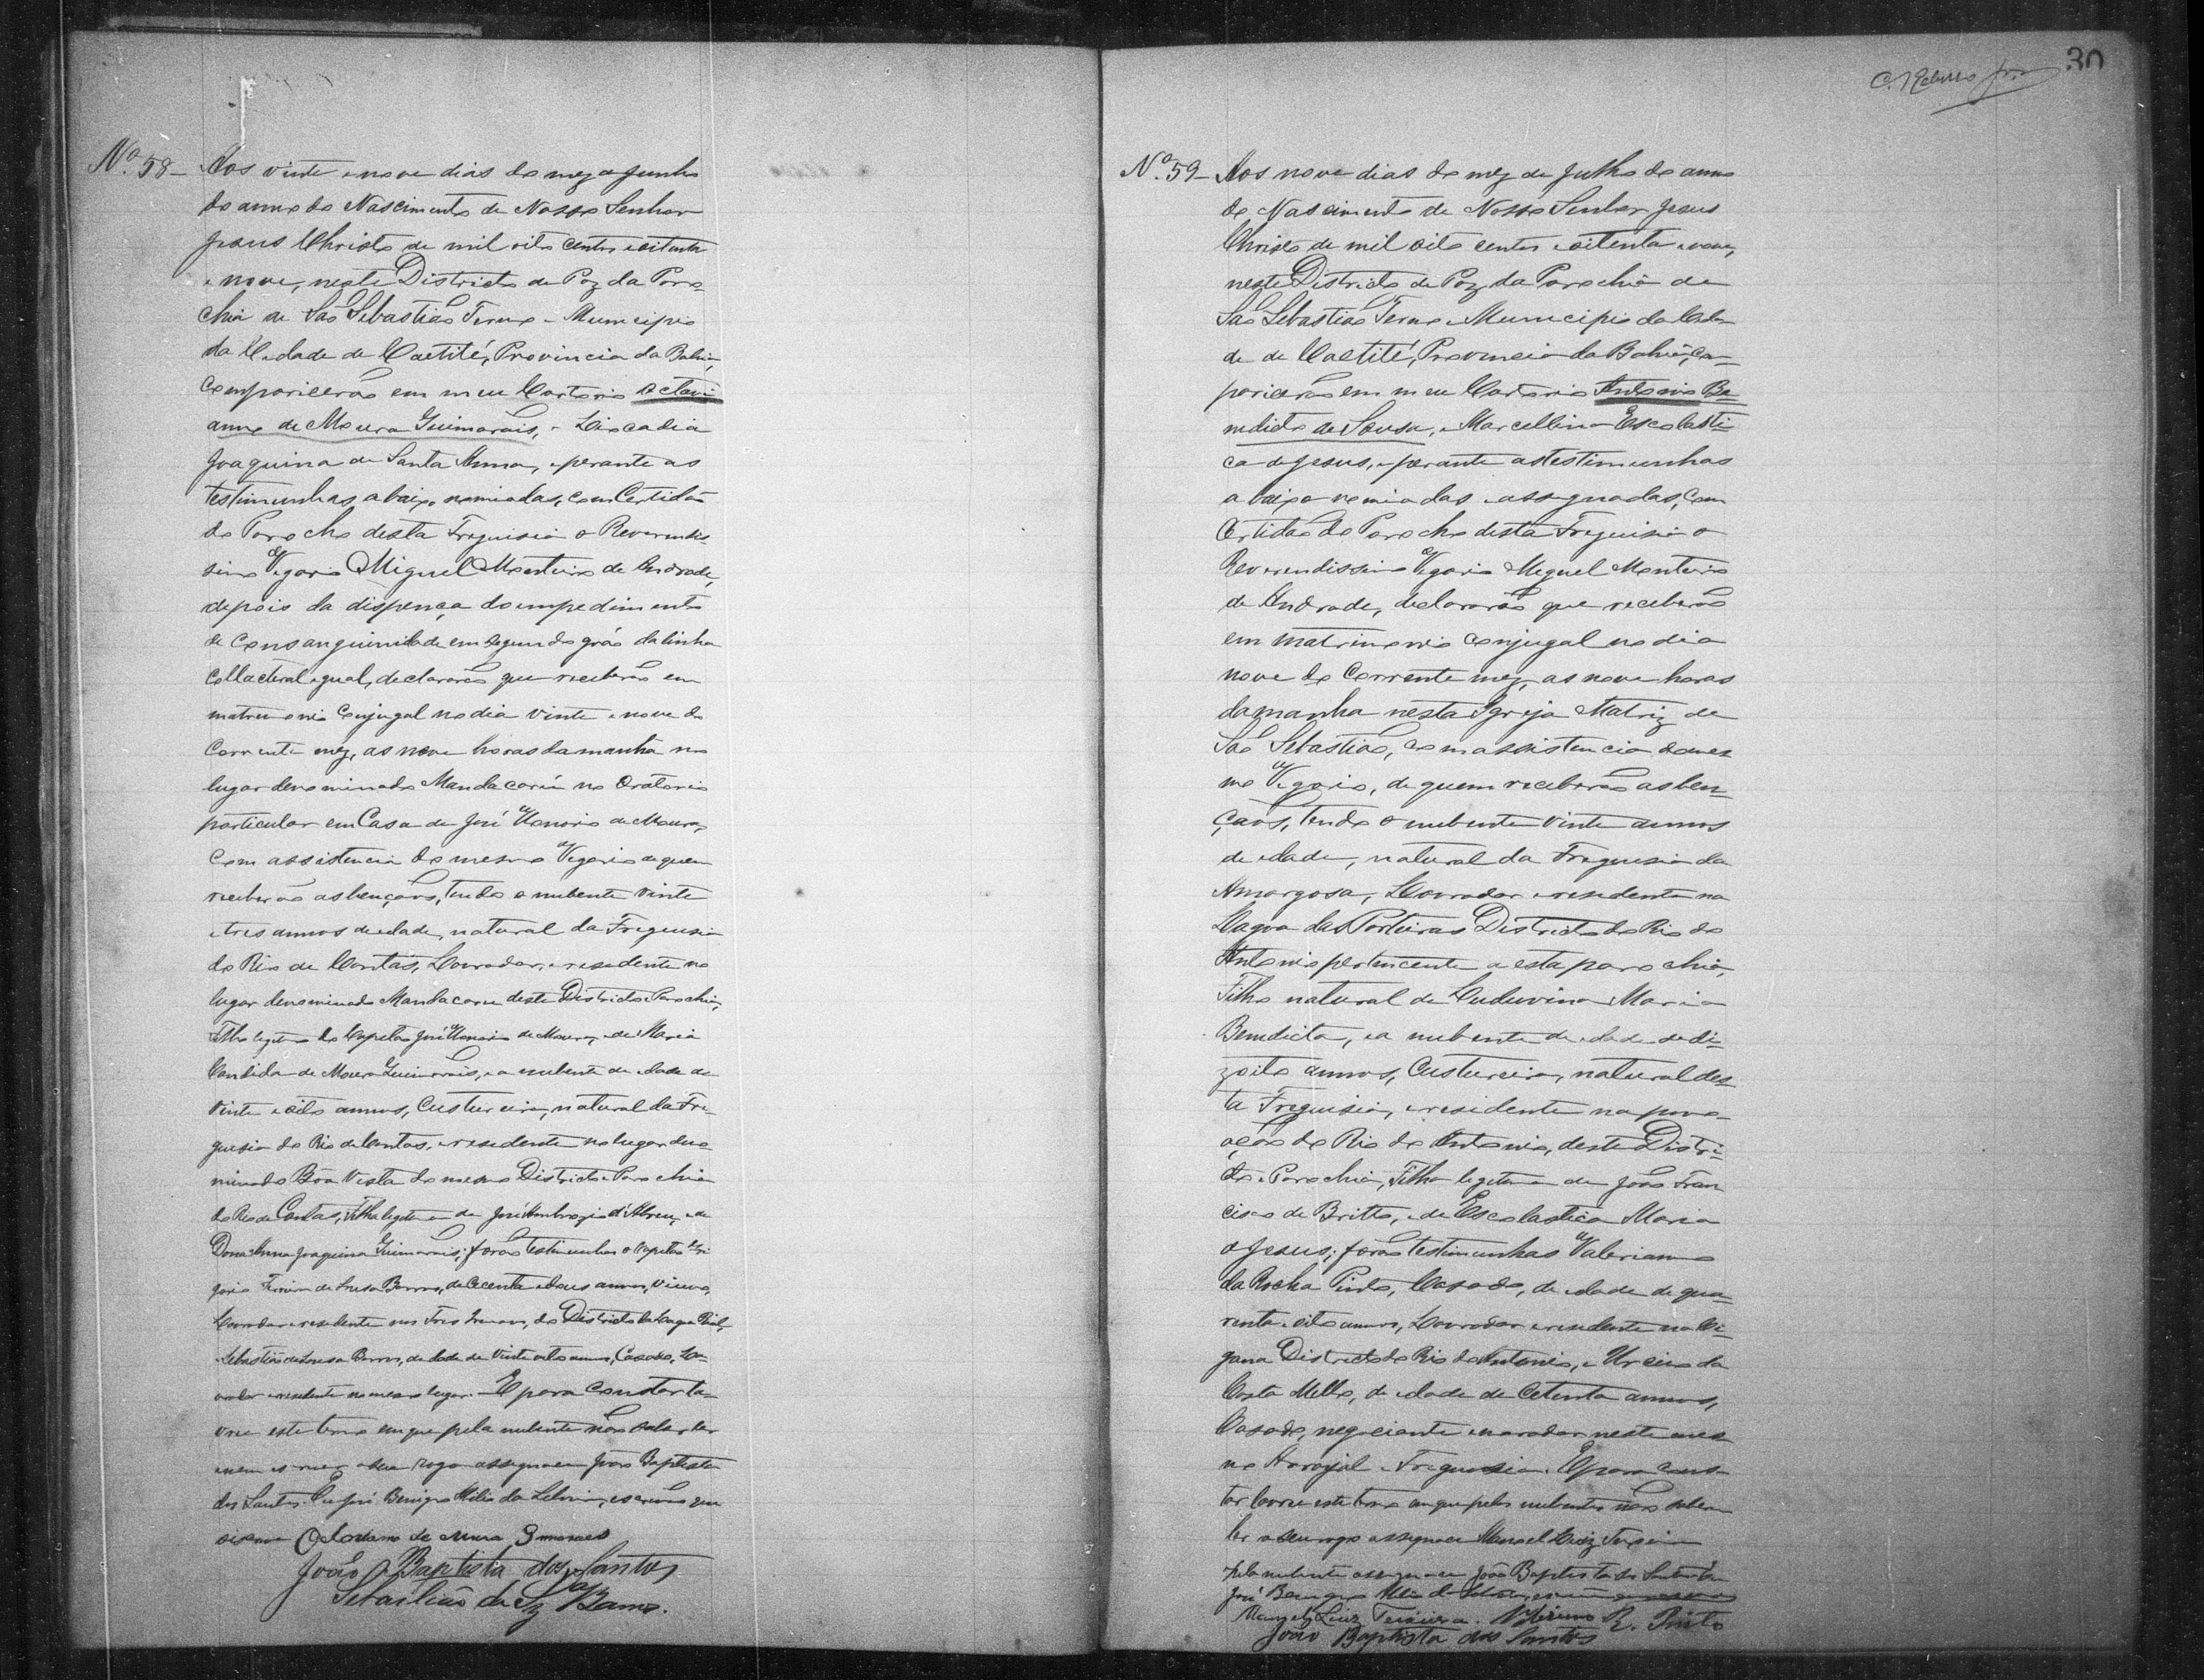 30
Nº 58 - Aos vinte e nove dias do mez de Junho
do anno do Nascimento de Nosso Senhor
Jesus Christo de mil oito centos e oitenta
e nove, neste Districto de Paz da Paro-
chia de São Sebastião Termo e Municipio
da Cidade de Caetité, Provincia da Bahia,
comparicerão em meu Cartorio Octavi
anno de Moura Guimarais, e Liocadia
Joaquina de Santa Anna, e perante as
testimunhas abaixo nomiadas, com Certidão
do Parocho desta Freguisia o Reverendis-
simo Vigario Miguel Monteiro de Andrade,
depois da dispença do impedimento
de consanguinidade em segundo gráo da linha
collacteral igual, declararão que receberão em
matrimonio conjugal no dia vinte e nove do
corrente mez, as nove horas da manhã no
lugar denominado Mandacarú no Oratorio
particular em Casa de José Honorio de Moura,
com assistencia do mesmo Vigario de quem
receberão as bençaos, tendo o nubente vinte
e tres annos de edade, natural da Freguesia
do Rio de Contas, Lavrador, e residente no
lugar denominado Mandacaru deste Districto e Parochia,
Filho legitimo do Capitão José Honorio de Moura, e de Maria
Candida de Moura Guimarais, e a nubente de edade de
vinte e oito annos, Custureira, natural da Fre-
guesia do Rio de Contas, e residente no lugar deno-
minado Bôa Vista do mesmo Districto e Parochia
do Rio de Contas, Filha legitima de José Ambrozio d'Abreu, e de
Dona Anna Joaquina Guimarais; forão testimunhas o Capitão
de Sousa Barros, de Cecenta e dous annos, viuvo,
Lavrador e residente nos Tres Irmaos, do Districto da Lagoa Real,
Sebastião de Sousa Barros, de edade de vinte oito annos, Casado, La-
vrador e residente no mesmo lugar. E para constar la-
vrei este termo em que pela nubente não saber ler
nem escrever a seu rogo assignou João Baptista
dos Santos. Eu José Benigno escrivão que
escrevi Octaviano de Moura Guimaraes
João Baptista dos Santos
Sebastião de Sz Barros.
Nº 59 - Aos nove dias do mez de Julho do anno
do Nascimento de Nosso Senhor Jesus
Christo de mil oito centos e oitenta e nove,
neste Districto de Paz da Parochia de
São Sebastião Termo e Municipio da Cida-
de de Caetité, Provincia da Bahia, com-
paricerão em meu Cartorio Antonio Be-
nedicto de Sousa, e Marcellina Escolasti-
ca de Jesus, e perante as testimunhas
abaixo nomiadas e assignadas, com
Certidão do Parocho desta Freguisia o
Reverendissimo Vigario Miguel Monteiro
de Andrade, declararão que receberão
em matrimonio conjugal no dia
nove do corrente mez, as nove horas
da manha nesta Igreja Matriz de
São Sebastião, com assistencia do mes-
mo Vigario, de quem receberão as ben-
çaos, tendo o nubente vinte annos
de edade, natural da Freguesia da
Amargosa, Lavrador e residente na
Lagoa das Porteiras Districto do Rio do
Antonio pertencente a esta parochia,
Filho natural de Luduvina Maria
Benedicta, e a nubente de edade de di-
zoito annos, Custureira, natural des-
ta Freguisia, e residente na povo-
ação do Rio do Antonio, deste Distri-
cto e Parochia, Filha legitima de João Fran-
cisco de Britto, e de Escolastica Maria
de Jesus; forão testimunhas Valeriano
da Rocha Pinto, Casado, de edade de qua-
renta e oito annos, Lavrador e residente na
Districto do Rio do Antonio, e Urcino da
Costa Mello, de edade de Cetenta annos,
Casado, negociante e morador neste mes-
mo Arraial e Freguesia. E para cons-
tar lavrei este termo em que pelos nubentes não saberem
ler a seu rogo assignou Manoel Luiz Teixeira
pela nubente assignou João Baptista dos Santos
José Benigno
Manoel Luiz Teixeira. R. Pinto
João Baptista dos Santos